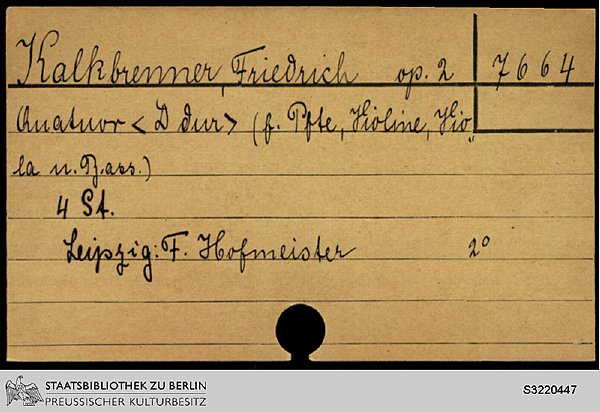 Kalkbrenner, Friedrich op. 2 7664
Quatuor < D dur > (f. Pfte, Violine, Vio„
la u. Bass.)
4 St.
Leipzig: F. Hofmeister 2°
STAATSBIBLIOTHEK ZU BERLIN
PREUSSISCHER KULTURBESITZ
S3220447